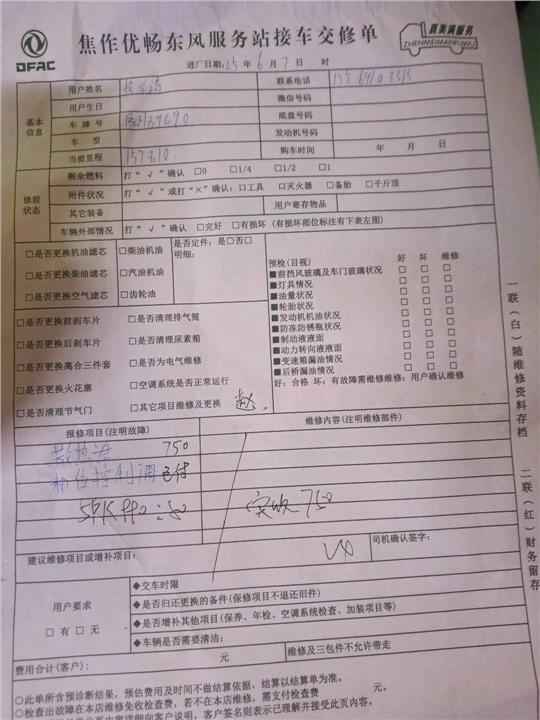 DFAC
焦作优畅东风服务站接车交修单
真美满服务
ZHENMEIMANFUWU
进厂日期:25年6月7日 时
基本信息
用户姓名
联系电话
用户生日
微信号码
车牌号
底盘号码
车型
发动机号码
当前里程 157810
购车时间 年 月 日
修前状态
剩余燃料 打“√”确认 □0 □1/4 □1/2 □1
附件状况 打“√”或打“×”确认:□工具 □灭火器 □备胎 □千斤顶
其它装备
用户寄存物品
车辆外部情况 打“√”确认 □完好 □有损坏(有损坏部位标注有下表左图)
□是否更换机油滤芯 □柴油机油
□是否更换柴油滤芯 □汽油机油
□是否更换空气滤芯 □齿轮油
是否定件:是□否□
明细:
□是否更换前刹车片 □是否清理排气筒
□是否更换后刹车片 □是否清理尿素箱
□是否更换离合三件套 □是否为电气维修
□是否更换火花塞 □空调系统是否正常运行
□是否清理节气门 □其它项目维修及更换
预检(目视) 好 坏 维修
■前挡风玻璃及车门玻璃状况 □ □ □
■灯具情况 □ □ □
■油量状况 □ □ □
■轮胎状况 □ □ □
■发动机机油状况 □ □ □
■防冻防锈瓶状况 □ □ □
■制动液液面 □ □ □
■动力转向液液面 □ □ □
■变速箱漏油情况 □ □ □
■后桥漏油情况 □ □ □
好:合格 坏:有故障需维修维修:用户确认维修
报修项目(注明故障)
维修内容(注明维修部件)
750
已付
实收750
建议维修项目或增补项目:
司机确认签字:
用户要求
□有 □无
◆交车时限
◆是否归还更换的备件(保修项目不退还旧件)
◆是否增补其他项目(保养、年检、空调系统检查、加装项目等)
◆车辆是否需要清洁:
费用合计(客户): 元
维修及三包件不允许带走
○此单所含预诊断结果,预估费用及时间不做结算依据,结算以结算单为准。
○检查出故障在本店维修免收检查费,若不在本店维修,需支付检查费 元。
客户签名则表示已理解并接受此页内容。
一联(白)随维修资料存档
二联(红)财务留存